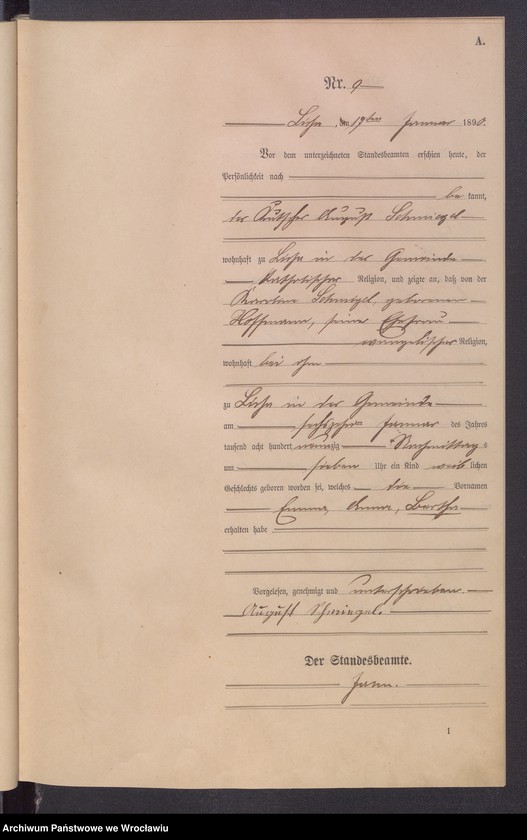 A.
Nr. 9
Lissa, den 17ten Januar 1890.
Vor dem unterzeichneten Standesbeamten erschien heute, der
Persönlichkeit nach
bekannt,
der Kutscher August Schmiegel
wohnhaft zu Lissa in der Gemeinde
katholischer Religion, und zeigte an, daß von der
Karoline Schmigel, geborenen
Hoffmann, seine Ehefrau
evangelischer Religion,
wohnhaft bei ihm
zu Lissa in der Gemeinde
am sechszehn Januar des Jahres
tausend acht hundert neunzig Nachmittag
um sieben Uhr ein Kind weiblichen
Geschlechts geboren worden sei, welches die Vornamen
Emma, Anna, Bertha
erhalten habe
Vorgelesen, genehmigt und unterschrieben.
August
Der Standesbeamte.
1
Archiwum Państwowe we Wrocławiu